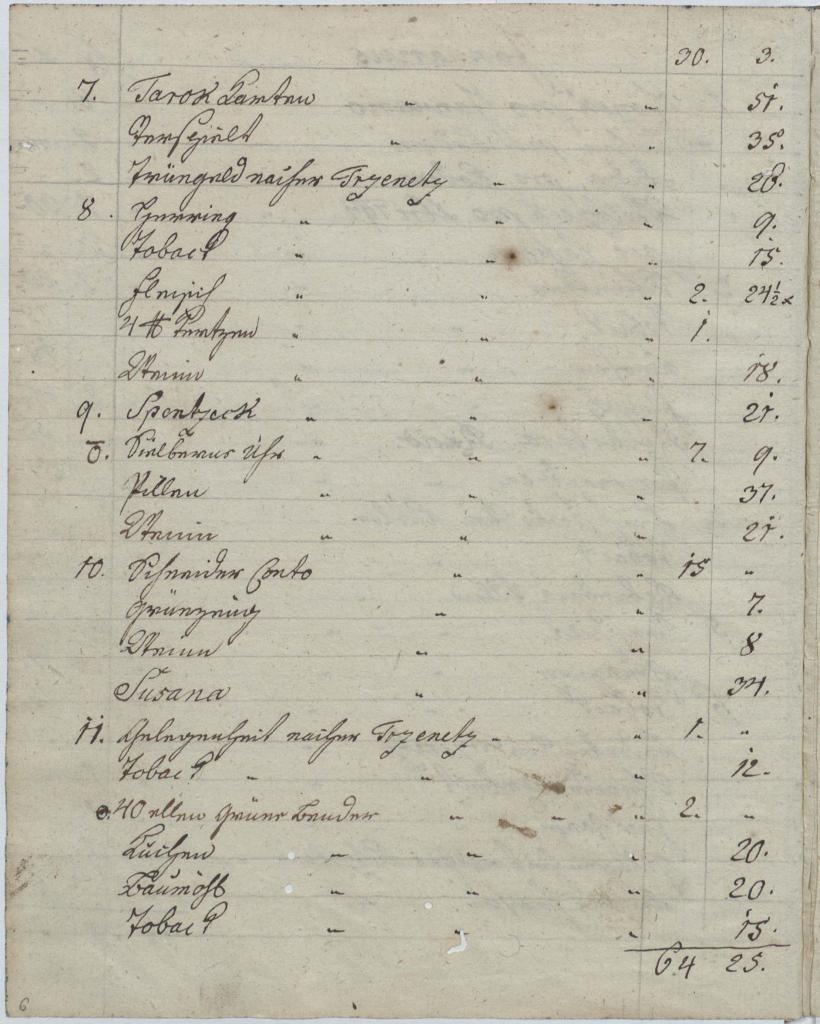 30. 3.
7. Tarok Karten " " 51.
Verspielt " " 35.
Trüngeld nacher Trzenetz " " 20.
8. Herring " " " 9.
Toback " " " 15.
Fleisch " " " 2. 24½ x
4 ℔ Kertzen " " " 1.
Wein " " " 18.
9. Spentzeck " " " 21.
Sielberne Uhr " " " 7. 9.
Pillen " " " 37.
Wein " " " 21.
10. Schneider Conto " " 15 "
Grünzeüg " " 7.
Wein " " 8
Susana " " 34.
11. Gelegenheit nacher Trzenetz " " 1. "
Toback " " " 12.
40 ellen Grüne Bender " " " 2. "
Kuchen " " " 20.
Baumöhl " " " 20.
Toback " " " 15.
64 25.
6